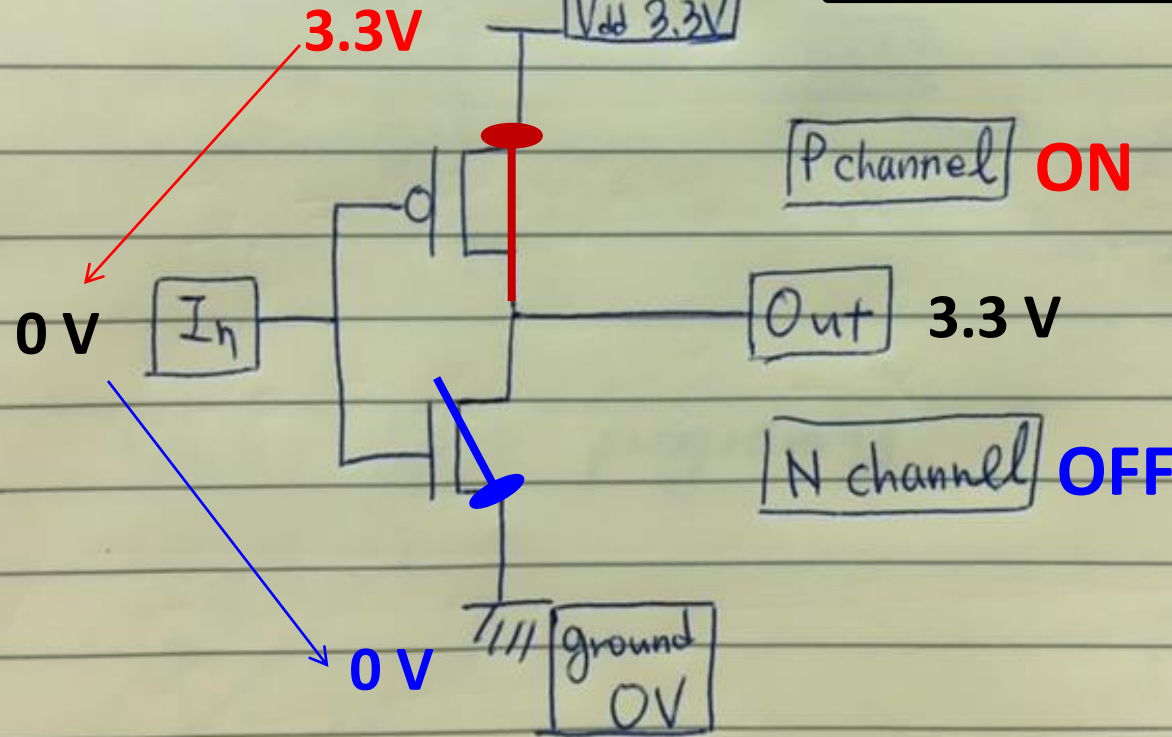 Vdd 3.3V
3.3V
Pchannel ON
0 V
In
Out
3.3 V
N channel OFF
0 V
ground
0V